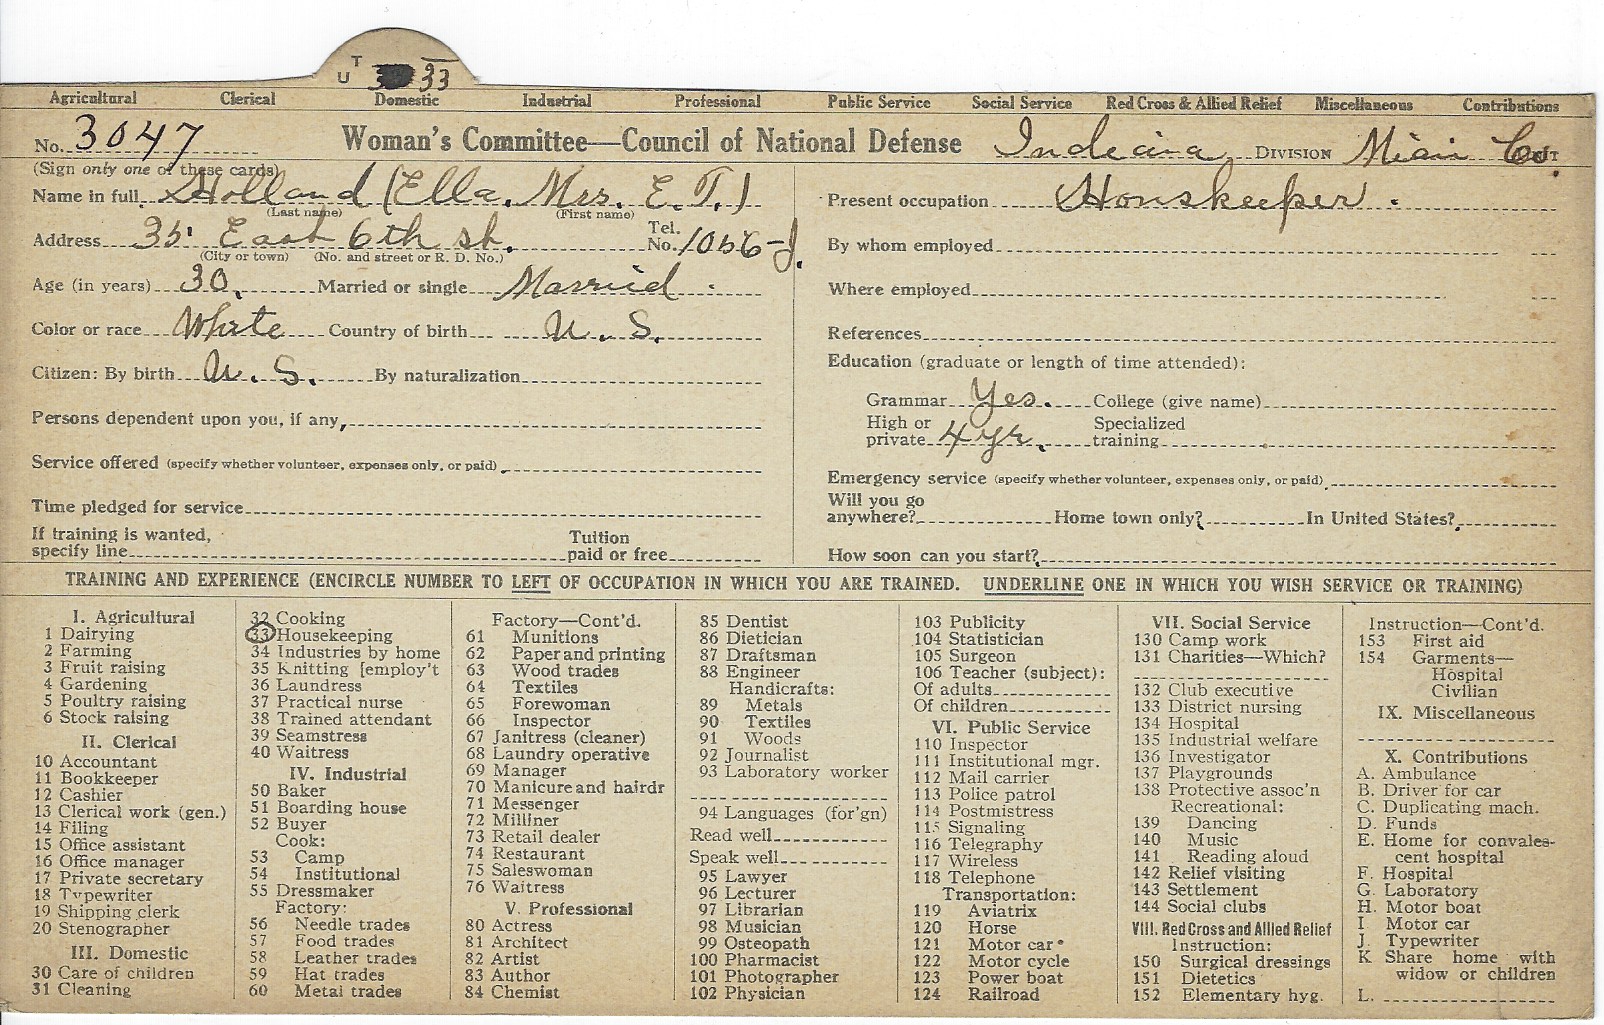 T
U 33
Agricultural Clerical Domestic Industrial Professional Public Service Social Service Red Cross & Allied Relief Miscellaneous Contributions
No. 3047 Woman's Committee—Council of National Defense Indiana DIVISION Miami Co.
(Sign only one of these cards)
Name in full Holland (Ella, Mrs. E. T.)
(Last name) (First name)
Address 35 East 6th st. Tel. No. 1056-J.
(City or town) (No. and street or R. D. No.)
Age (in years) 30. Married or single Married
Color or race White Country of birth U. S.
Citizen: By birth U. S. By naturalization
Persons dependent upon you, if any,
Service offered (specify whether volunteer, expenses only, or paid)
Time pledged for service
If training is wanted,
specify line Tuition paid or free
Present occupation Houskeeper.
By whom employed
Where employed
References
Education (graduate or length of time attended):
Grammar Yes. College (give name)
High or private 4 yr. Specialized training
Emergency service (specify whether volunteer, expenses only, or paid)
Will you go
anywhere? Home town only? In United States?
How soon can you start?
TRAINING AND EXPERIENCE (ENCIRCLE NUMBER TO LEFT OF OCCUPATION IN WHICH YOU ARE TRAINED. UNDERLINE ONE IN WHICH YOU WISH SERVICE OR TRAINING)
I. Agricultural
1 Dairying
2 Farming
3 Fruit raising
4 Gardening
5 Poultry raising
6 Stock raising
II. Clerical
10 Accountant
11 Bookkeeper
12 Cashier
13 Clerical work (gen.)
14 Filing
15 Office assistant
16 Office manager
17 Private secretary
18 Typewriter
19 Shipping clerk
20 Stenographer
III. Domestic
30 Care of children
31 Cleaning
32 Cooking
33 Housekeeping
34 Industries by home
35 Knitting [employ't
36 Laundress
37 Practical nurse
38 Trained attendant
39 Seamstress
40 Waitress
IV. Industrial
50 Baker
51 Boarding house
52 Buyer
Cook:
53 Camp
54 Institutional
55 Dressmaker
Factory:
56 Needle trades
57 Food trades
58 Leather trades
59 Hat trades
60 Metal trades
Factory—Cont'd.
61 Munitions
62 Paper and printing
63 Wood trades
64 Textiles
65 Forewoman
66 Inspector
67 Janitress (cleaner)
68 Laundry operative
69 Manager
70 Manicure and hairdr
71 Messenger
72 Milliner
73 Retail dealer
74 Restaurant
75 Saleswoman
76 Waitress
V. Professional
80 Actress
81 Architect
82 Artist
83 Author
84 Chemist
85 Dentist
86 Dietician
87 Draftsman
88 Engineer
Handicrafts:
89 Metals
90 Textiles
91 Woods
92 Journalist
93 Laboratory worker
94 Languages (for'gn)
Read well
Speak well
95 Lawyer
96 Lecturer
97 Librarian
98 Musician
99 Osteopath
100 Pharmacist
101 Photographer
102 Physician
103 Publicity
104 Statistician
105 Surgeon
106 Teacher (subject):
Of adults
Of children
VI. Public Service
110 Inspector
111 Institutional mgr.
112 Mail carrier
113 Police patrol
114 Postmistress
115 Signaling
116 Telegraphy
117 Wireless
118 Telephone
Transportation:
119 Aviatrix
120 Horse
121 Motor car
122 Motor cycle
123 Power boat
124 Railroad
VII. Social Service
130 Camp work
131 Charities—Which?
132 Club executive
133 District nursing
134 Hospital
135 Industrial welfare
136 Investigator
137 Playgrounds
138 Protective assoc'n
Recreational:
139 Dancing
140 Music
141 Reading aloud
142 Relief visiting
143 Settlement
144 Social clubs
VIII. Red Cross and Allied Relief
Instruction:
150 Surgical dressings
151 Dietetics
152 Elementary hyg.
Instruction—Cont'd.
153 First aid
154 Garments—
Hospital
Civilian
IX. Miscellaneous
X. Contributions
A. Ambulance
B. Driver for car
C. Duplicating mach.
D. Funds
E. Home for convales-
cent hospital
F. Hospital
G. Laboratory
H. Motor boat
I Motor car
J. Typewriter
K Share home with
widow or children
L.